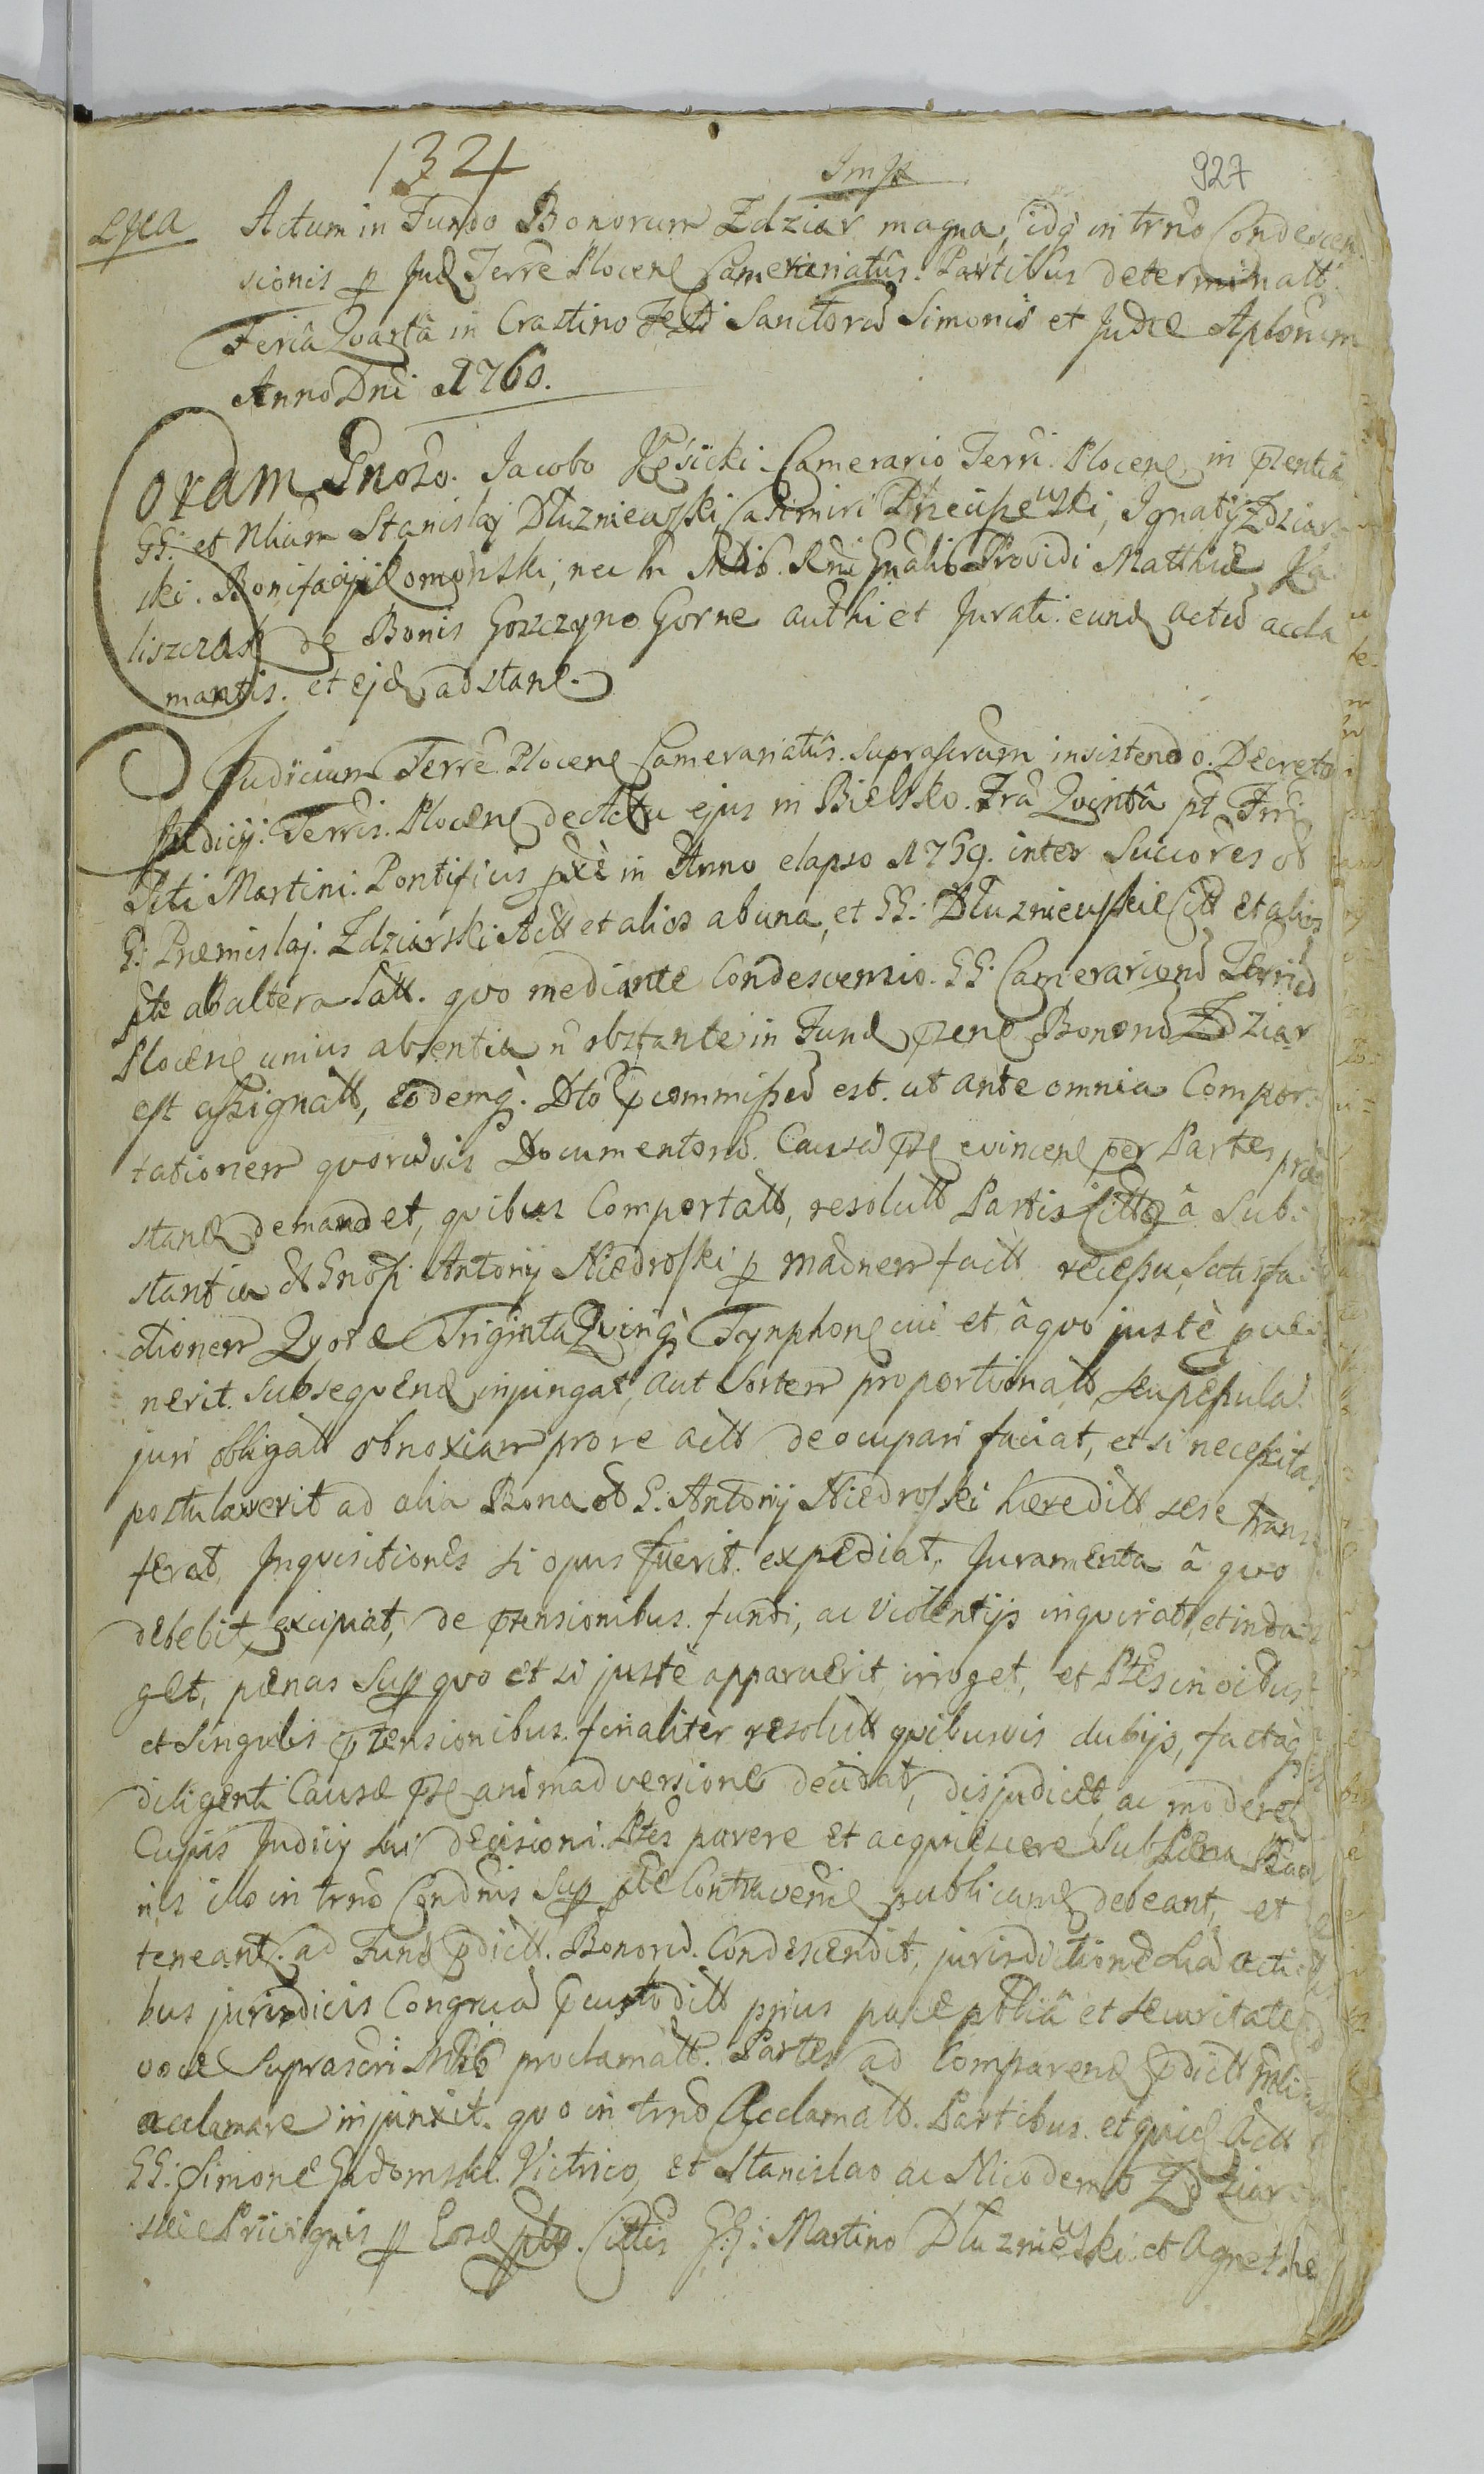 1324
Imse
927
Lgea
Actum in Fundo Bonorum Zdziar magna, idq in trno Condescen
sionis p Jud Terre Plocen Camerariatûs. Partibus determinatt.
Feriâ Quartâ in Crastino Festi Sanctorũ Simonis et Judæ Aplorum
Anno Dni 1760.
Coram Gnoso. Jacobo Kęsicki Camerario Terri. Plocen in pntia
GG: et Nlium Stanislaj Dłuzniewski Casimiri Ignatij Zdziar
ski. Bonifacij Łomoński, nec n Mtis. Rni Gnalis Providi Matthiæ Ka
liszczak de Bonis Goszczyno Gorne authi et Jurati eund actũ accla
mantis. et ejd adstan.
Judicium Terre Plocen Camerariatûs. suprascrum insistendo. Decreto
Judicij. Terris. Plocen de Actu ejus in Bielsko. Fra Quintâ pt Fm
Scti Martini. Pontificis pxe in Anno elapso 1759. inter Succores ol
G: Premislaj. Zdziarski Actt et alios ab una, et GG: Dłuzniewskie Citt et alios
pte ab altera Latt. quo mediante Condescensio. GG: Camerariorũ Terriũ
Plocen unius absentia ñ obstante in Fund pzen Bonorũ Zdziar
est assignatt, eodemq. Dto pcommissũ est. ut ante omnia Compor
tationem quorũvis Documentorũ. Causã pse evincen per Partes præ
stand demandet, quibus Comportatt, resolutt Partis Citte â Sub
stantia ol Gnosi Antonij Niedroski p madnem factt recessu, Satisfa
ctionem Quotæ Triginta Quinq Tynphon cui et âquo justè pve
nerit. subsequend injungat, aut Sortem proportionatt, seu pessula
juri obligatt obnoxiam pro re actt deocupari faciat, et si necessitas
postulaverit ad alia Bona ol G: Antonij Niedroski hæreditt sese trans
ferat, Inquisitiones si opus fuerit. expediat, Juramenta â quo
debebit, excipiat, de ptensionibus. fundi, ac Violentijs inquirat, et inda
get, pænas Sup quo et si justè apparuerit irroget, et Ptes in oibus
et Singulis ptensionibus. finalitèr resolutt quibusvis dubijs, factaq
diligenti Causæ pse animadversione decidat, disjudicet ac moderet
Cujus Judicij sui decisioni. Ptes parere et acquiescere Sub Pæna Ban
nis illo in trno Condnis Sup pte Contraveñie publicand debeant, et
teneant. ad Fund pdictt. Bonorũ. Condescendit, jurisdictionẽ suã acti
bus jurisdicis Congruã pcustoditt prius pace pbliâ et securitate
voce suprascri Mtlis proclamatt. Partes ad Comparend pdictt
acclamare injunxit. quo in trno Acclamatt. Partibus. et quid Actt
GG: Simone Gadomski. Victrico, et Stanislao ac Nicodemo Zdziar
skie Privignis p Cosd pte. Cittis GG: Martino Dłuzniewski et Agnethe